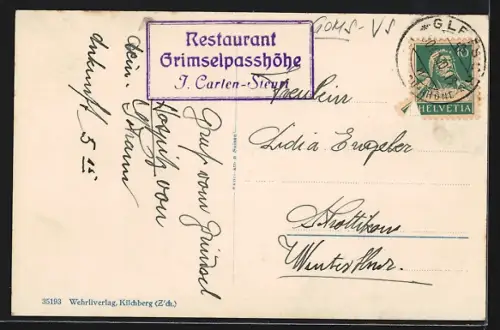 Restaurant
Grimselpasshöhe
J. Carlen-Steuri
GOMS-VS
GLE
10
HELVETIA
Fräulein
Lidia Engeler
Winterthur.
Gruß vom Grimsel
Hospiz von
Dein
Johann
Ankunft 5
35193 Wehrliverlag, Kilchberg (Z'ch.)